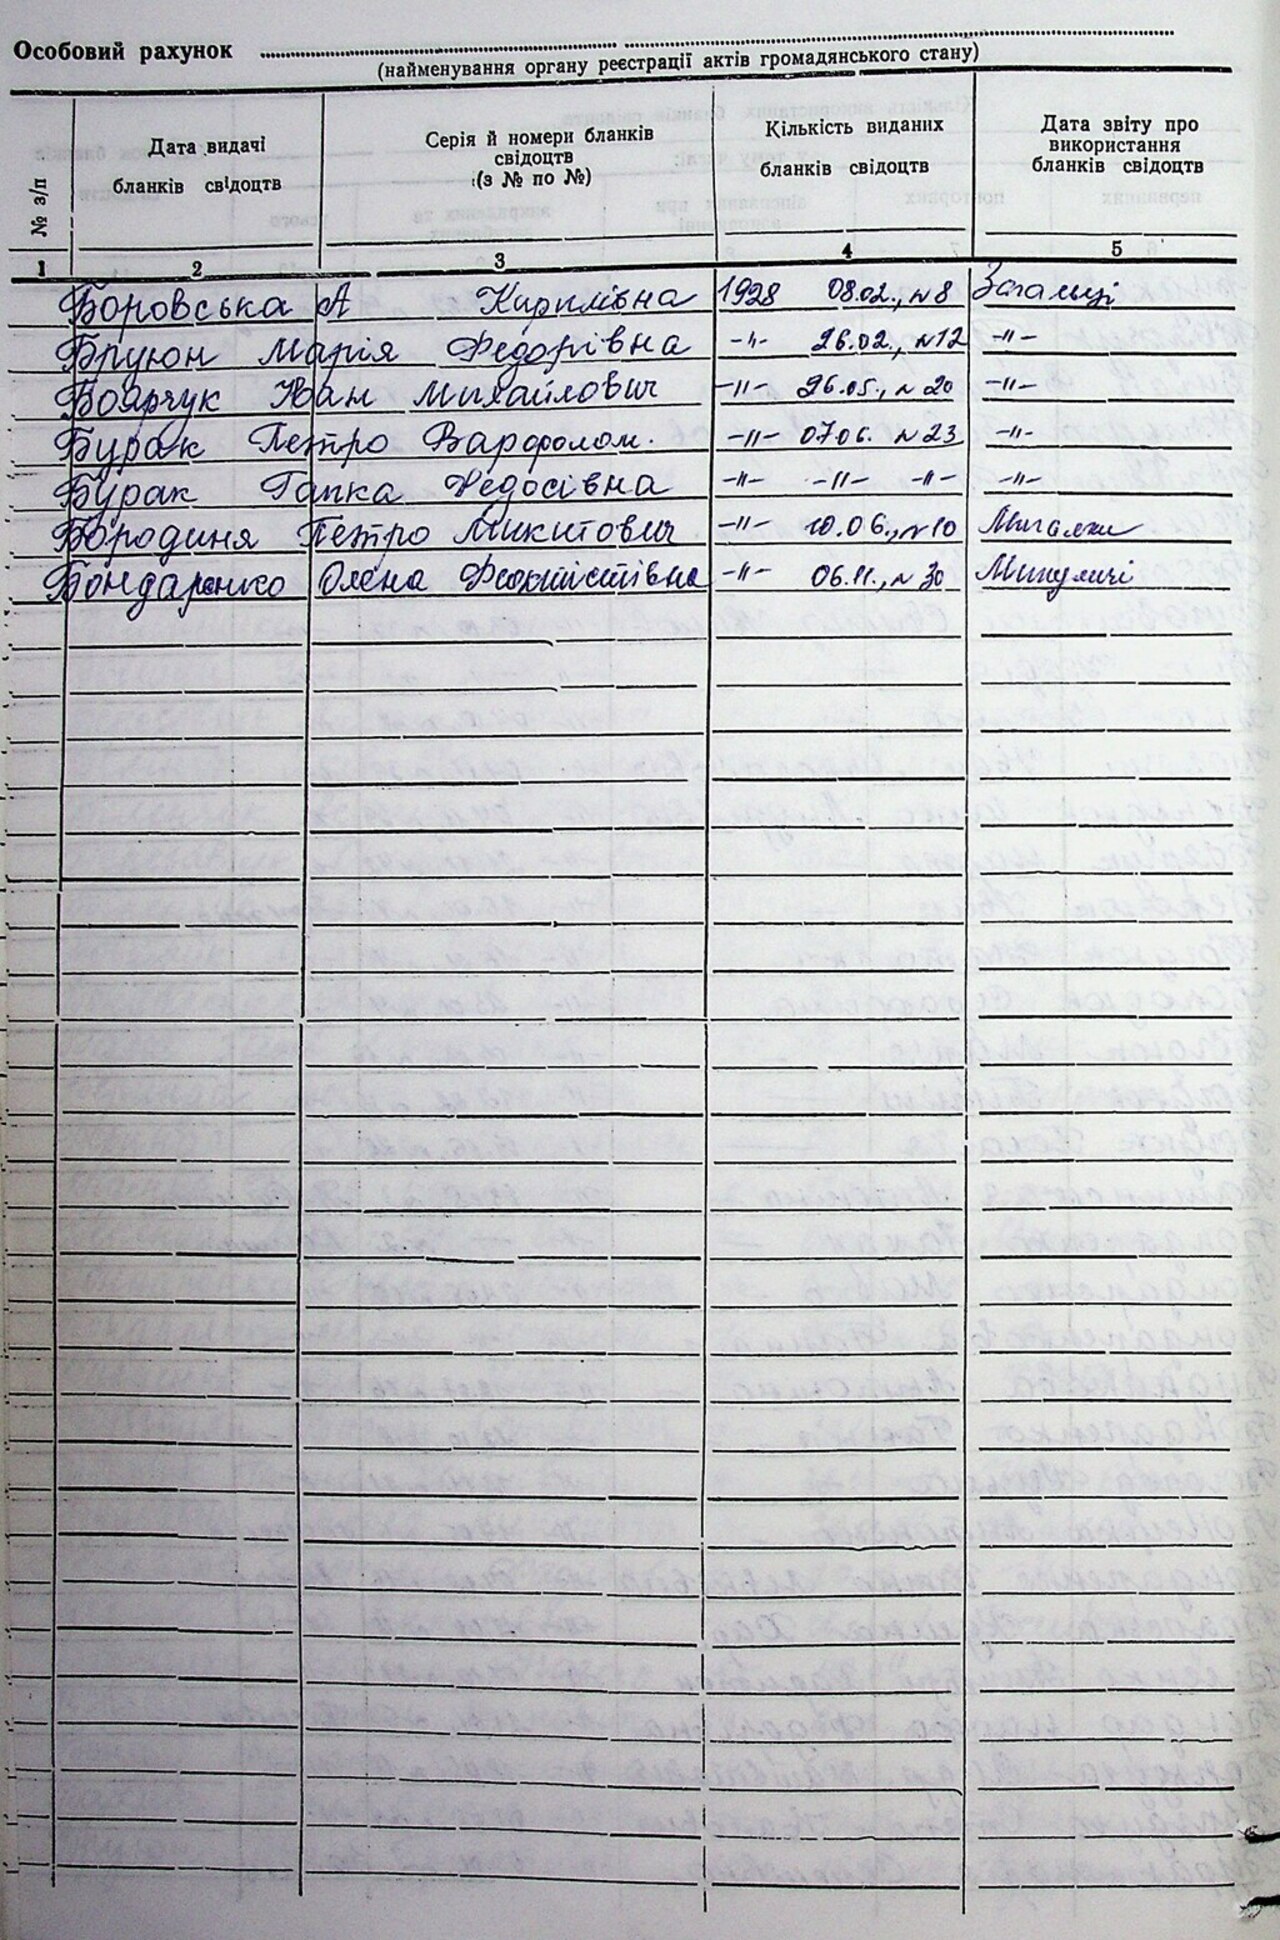 Особовий рахунок
(найменування органу реєстрації актів громадянського стану)
№ з/п
Дата видачі
бланків свідоцтв
Серія й номери бланків
свідоцтв
(з № по №)
Кількість виданих
бланків свідоцтв
Дата звіту про
використання
бланків свідоцтв
1 2 3 4 5
Боровська А Кирилівна 1928 08.02., №8 Загальці
Бруюн Марія Федорівна -"- 26.02., №12 -"-
Боярчук Іван Михайлович -"- 26.05., №20 -"-
Бурак Петро Варфолом. -"- 07.06. №23 -"-
Бурак Гапка Федосівна -"- -"- -"- -"-
Бородиня Петро Микитович -"- 10.06., №10
Бондаренко Олена Феоктистівна -"- 06.11., №30 Микуличі